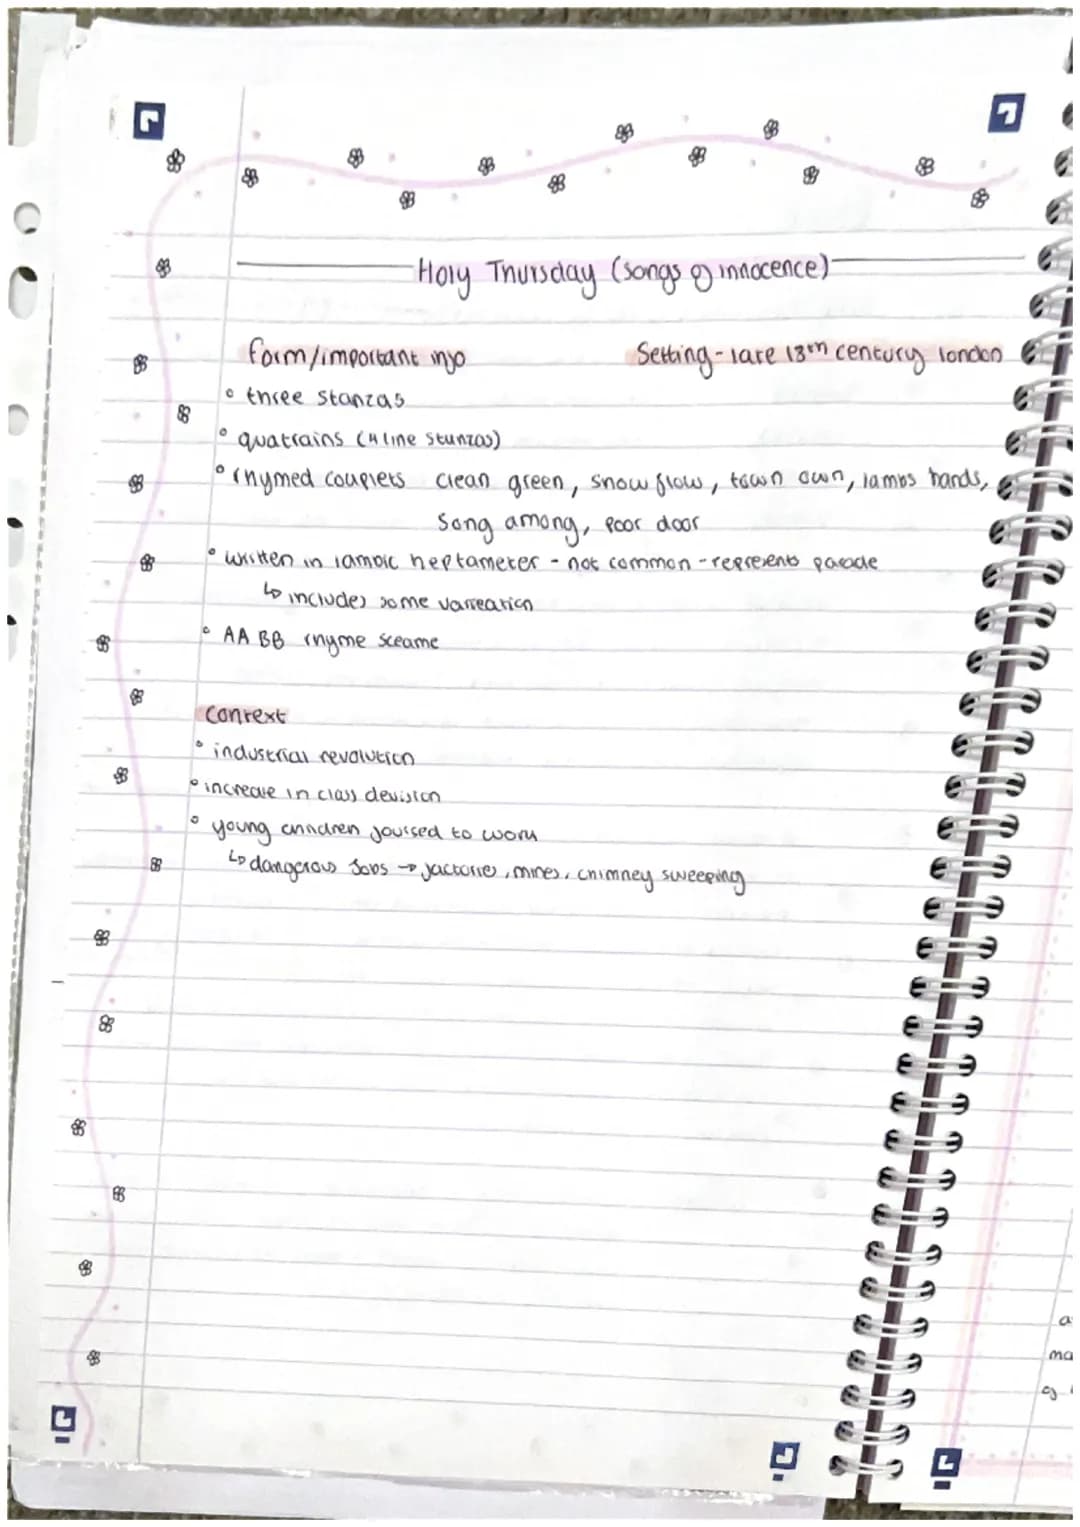 Holy Thursday (songs of innocence)
form/important info
Setting - late 18th century london
three stanzas
quatrains (4 line stanzas)
rhymed couplets clean green, snow flow, town own, lambs hands,
song among, poor door
written in iambic heptameter - not common - represents parade
↳ includes some varreation
AA BB rhyme sceame
context
industrial revolution
increase in class devision
young children foussed to work
↳ dangerous Jobs → factories, mines, chimney sweeping
a
ma
of